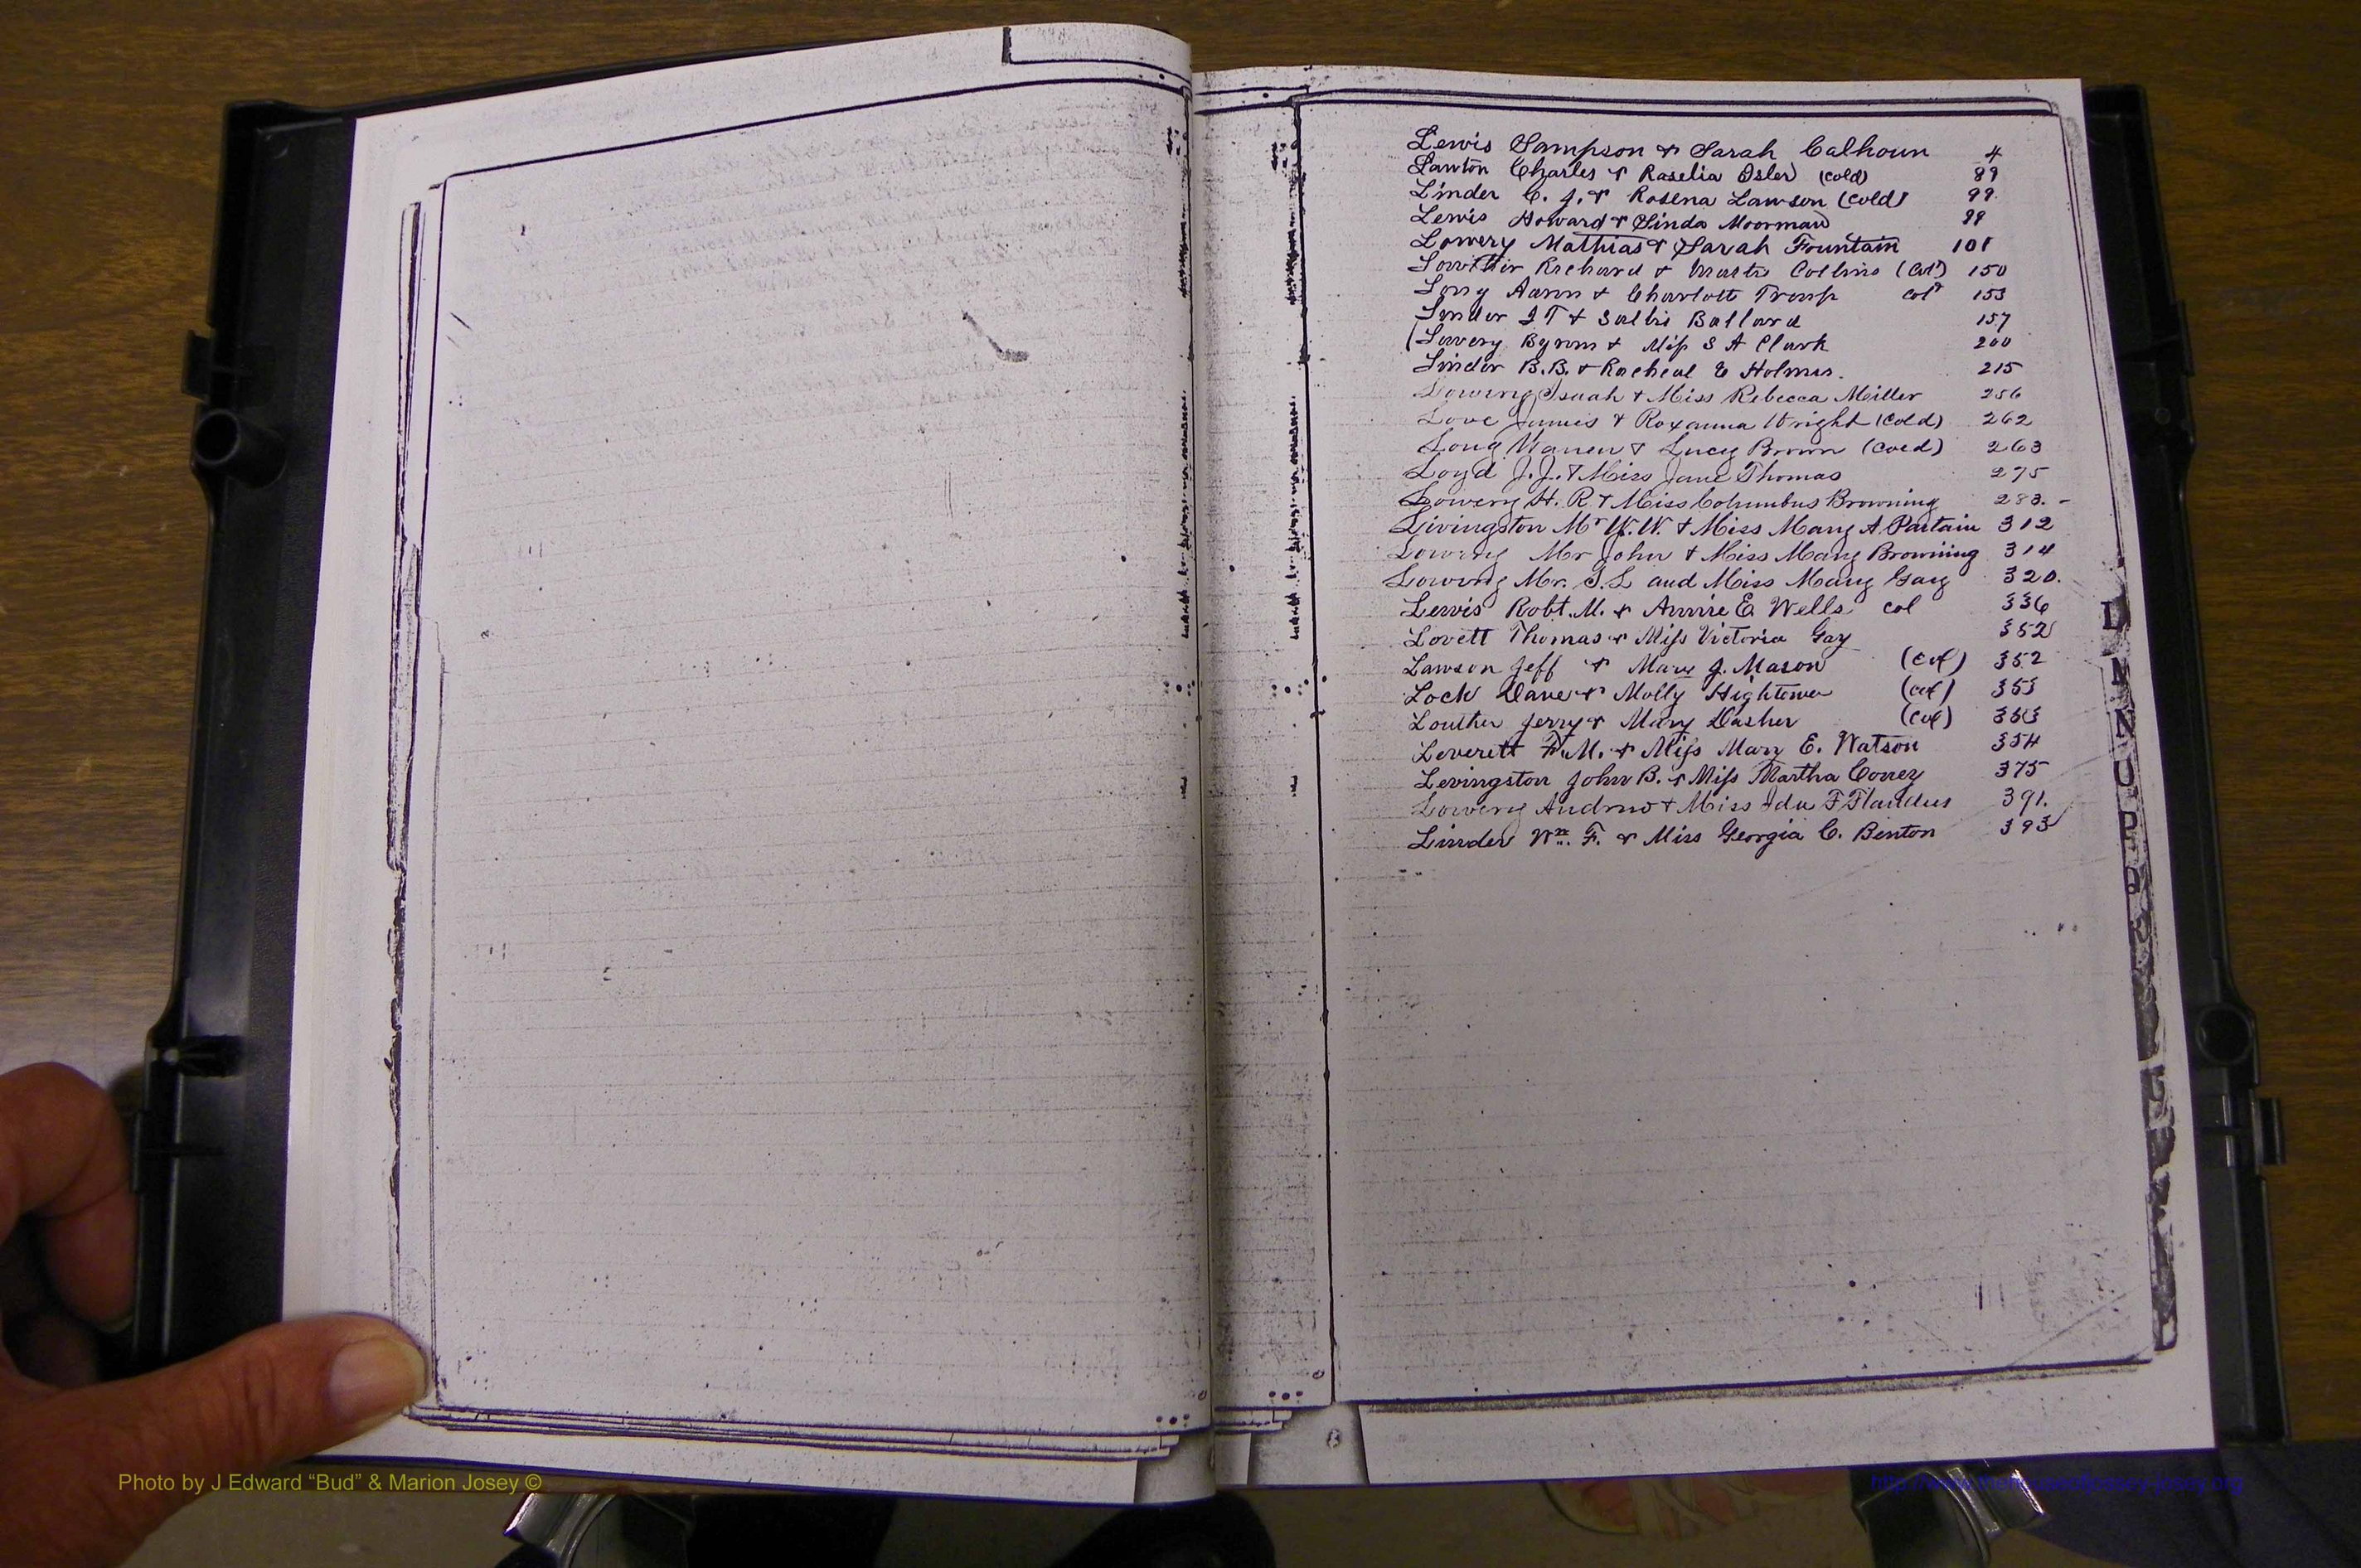 Lewis Sampson & Sarah Calhoun 4
Lawton Charles & Raselia Isler (Cold) 89
Linder C. J. & Rosena Lawson (Cold) 99
Lewis Howard & Linda Moorman 99
Lowery Mathias & Sarah Fountain 101
Richard & Collins (Col) 150
Long Aaron & Charlotte Troup Col 153
Linder J T & Sallie Ballard 157
Lowery Byrom & Miss S A Clark 200
Linder B.B. & Racheal E Holmes. 215
Lowery Isaah & Miss Rebecca Miller 256
Love James & Roxanna Wright (Cold) 262
Long Warren & Lucy Brown (Cold) 263
Loyd J. J. & Miss Jane Thomas 275
Lowery H. R & Miss Columbus Browning 283. -
Livingston Mr W. W. & Miss Mary A Partain 312
Lowery Mr John & Miss Mary Browning 314
Lowery Mr. S. L and Miss Mary Gay 320.
Lewis Robt. M. & Annie E. Wells col 336
Lovett Thomas & Miss Victoria Gay 352
Lawson Jeff & Mary J. Mason (Col) 352
Lock Dave & Molly Hightower (Col) 353
Louther Jerry & Mary Dasher (Col) 353
Leverett F. M. & Miss Mary E. Watson 354
Levingston John B. & Miss Martha Correy 375
Lowery Andrew & Miss Ida F Flanders 391.
Linder Wm. F. & Miss Georgia C. Benton 393
L
M
N
Photo by J Edward “Bud” & Marion Josey ©
http://www.thehouseofjossey-josey.org